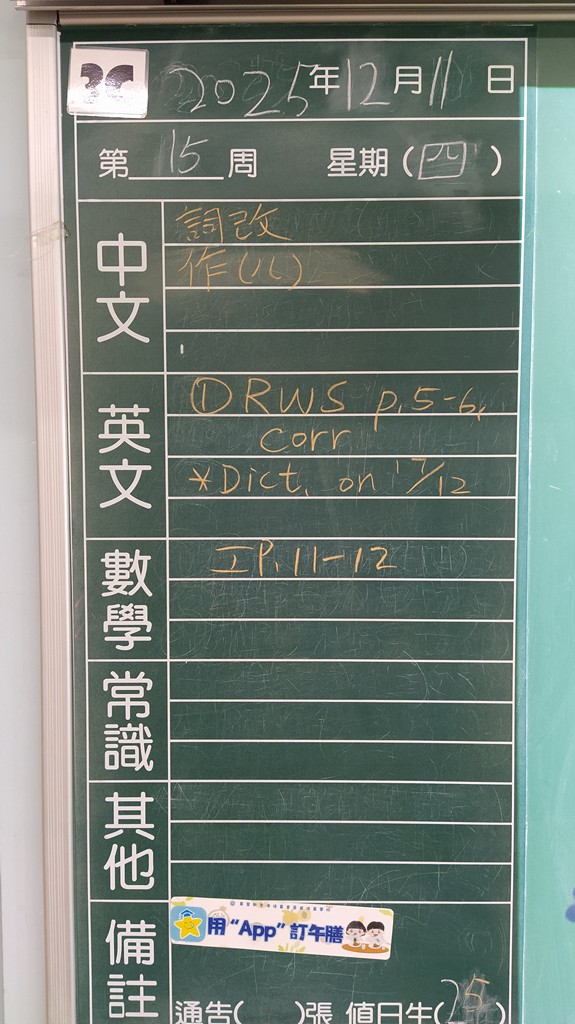 2025年12月11日
第15周 星期(四)
中文
詞改
作(八)
英文
① RWS p.5-6,
corr
*Dict. on 17/12
數學
工P.11-12
常識
其他
備註
用“App”訂午膳
通告( )張 值日生(25)